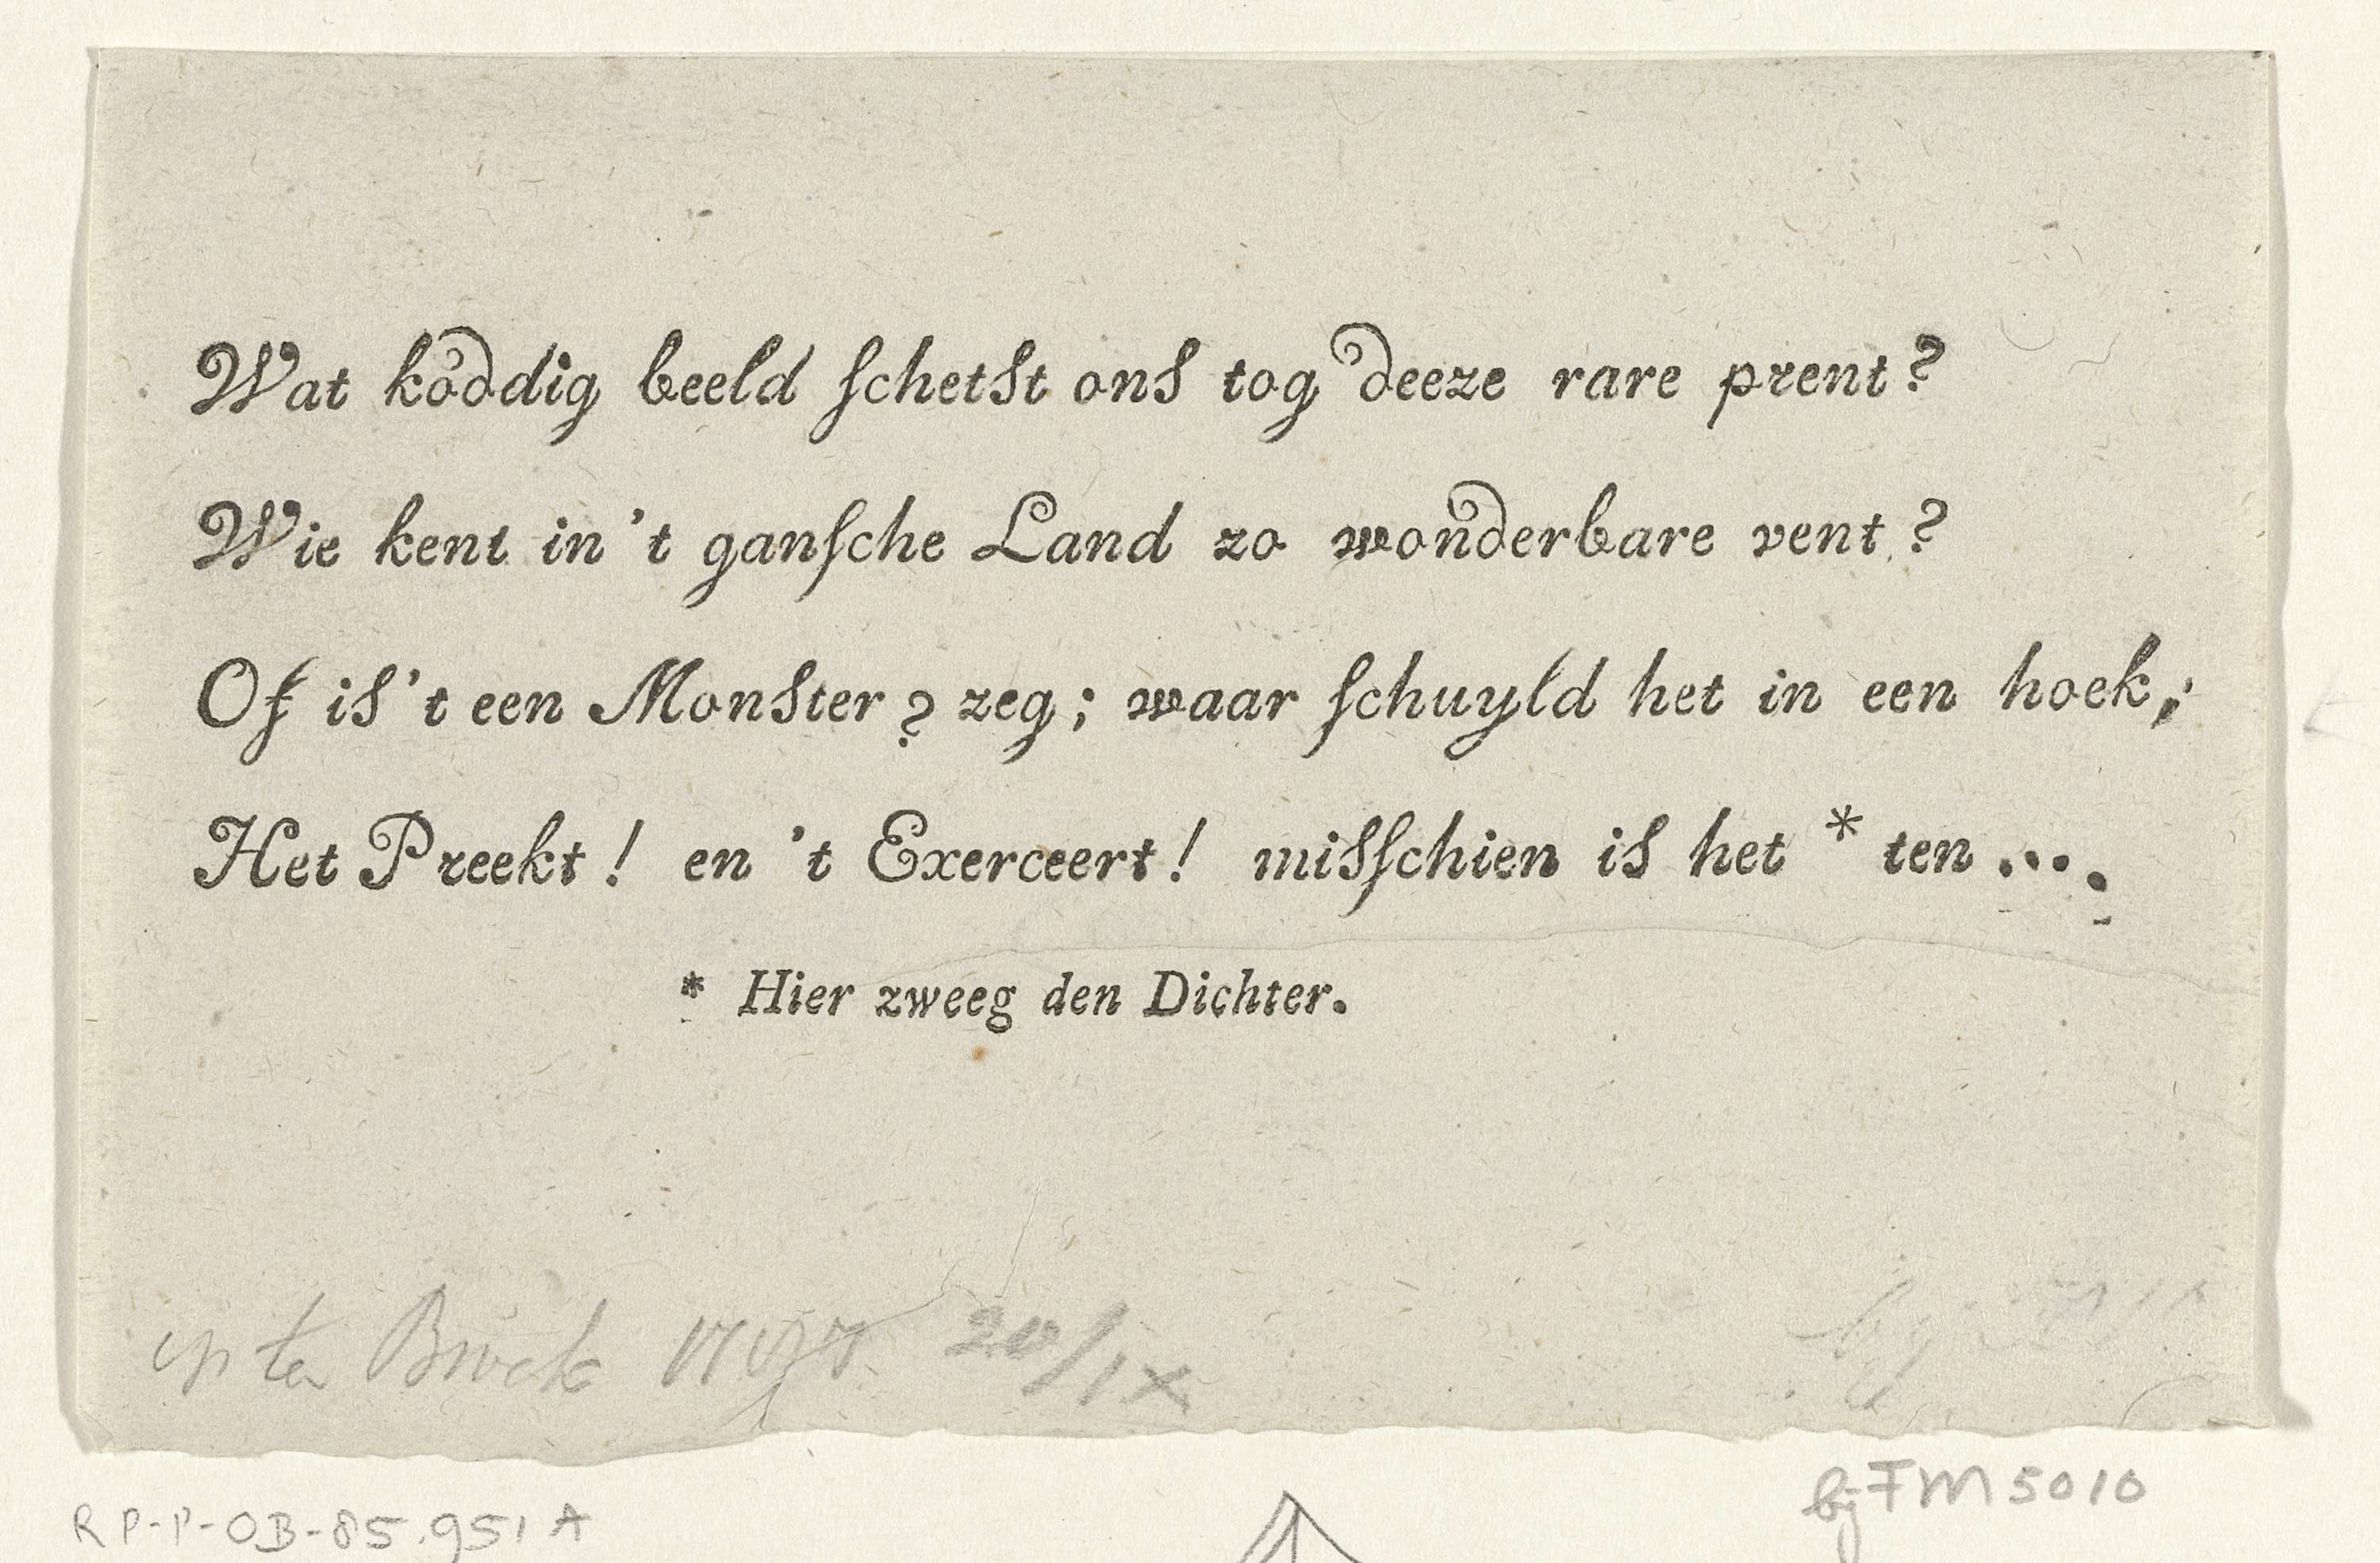 Wat koddig beeld schetst ons tog deeze rare prent?
Wie kent in 't gansche Land zo wonderbare vent?
Of is 't een Monster? zeg; waar schuyld het in een hoek;
Het Preekt! en 't Exerceert! misschien is het * ten ....
* Hier zweeg den Dichter.
op ten Broek 20/IX
RP-P-OB-85.951 A
bij FM 5010